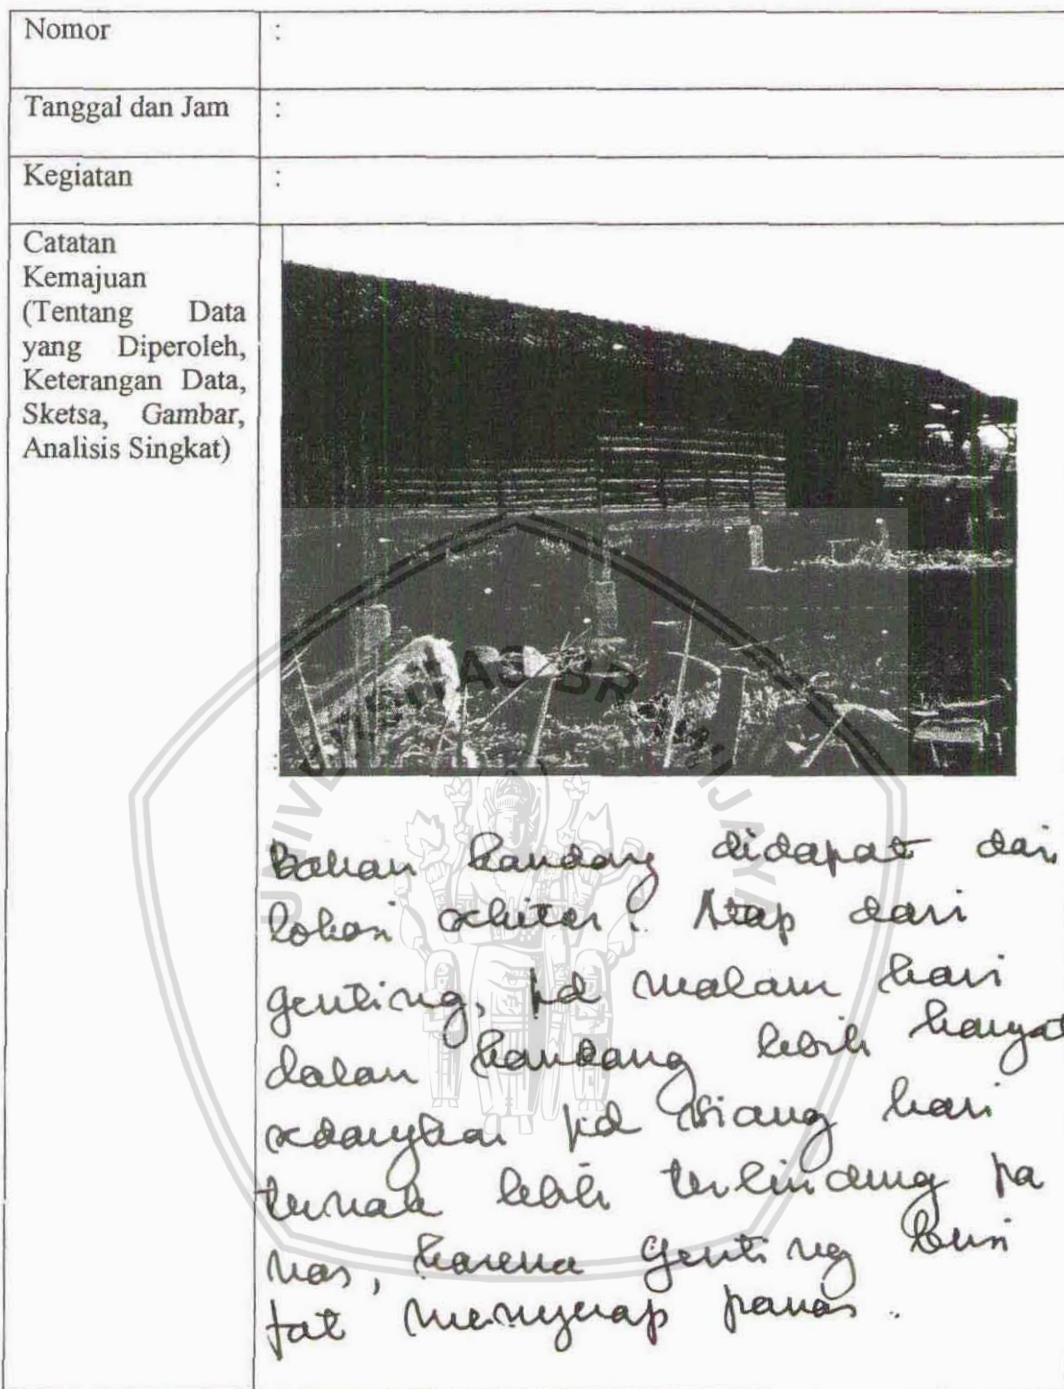 Nomor :
Tanggal dan Jam :
Kegiatan :
Catatan
Kemajuan
(Tentang Data
yang Diperoleh,
Keterangan Data,
Sketsa, Gambar,
Analisis Singkat)
:
UNIVERSITAS BRAWIJAYA
Bahan kandang didapat dari
lokasi sekitar. Atap dari
genting, pd malam hari
dalam kandang lebih hangat
sedangkan pd siang hari
ternak lebih terlindung pa
nas, karena genting bersi
fat menyerap panas.